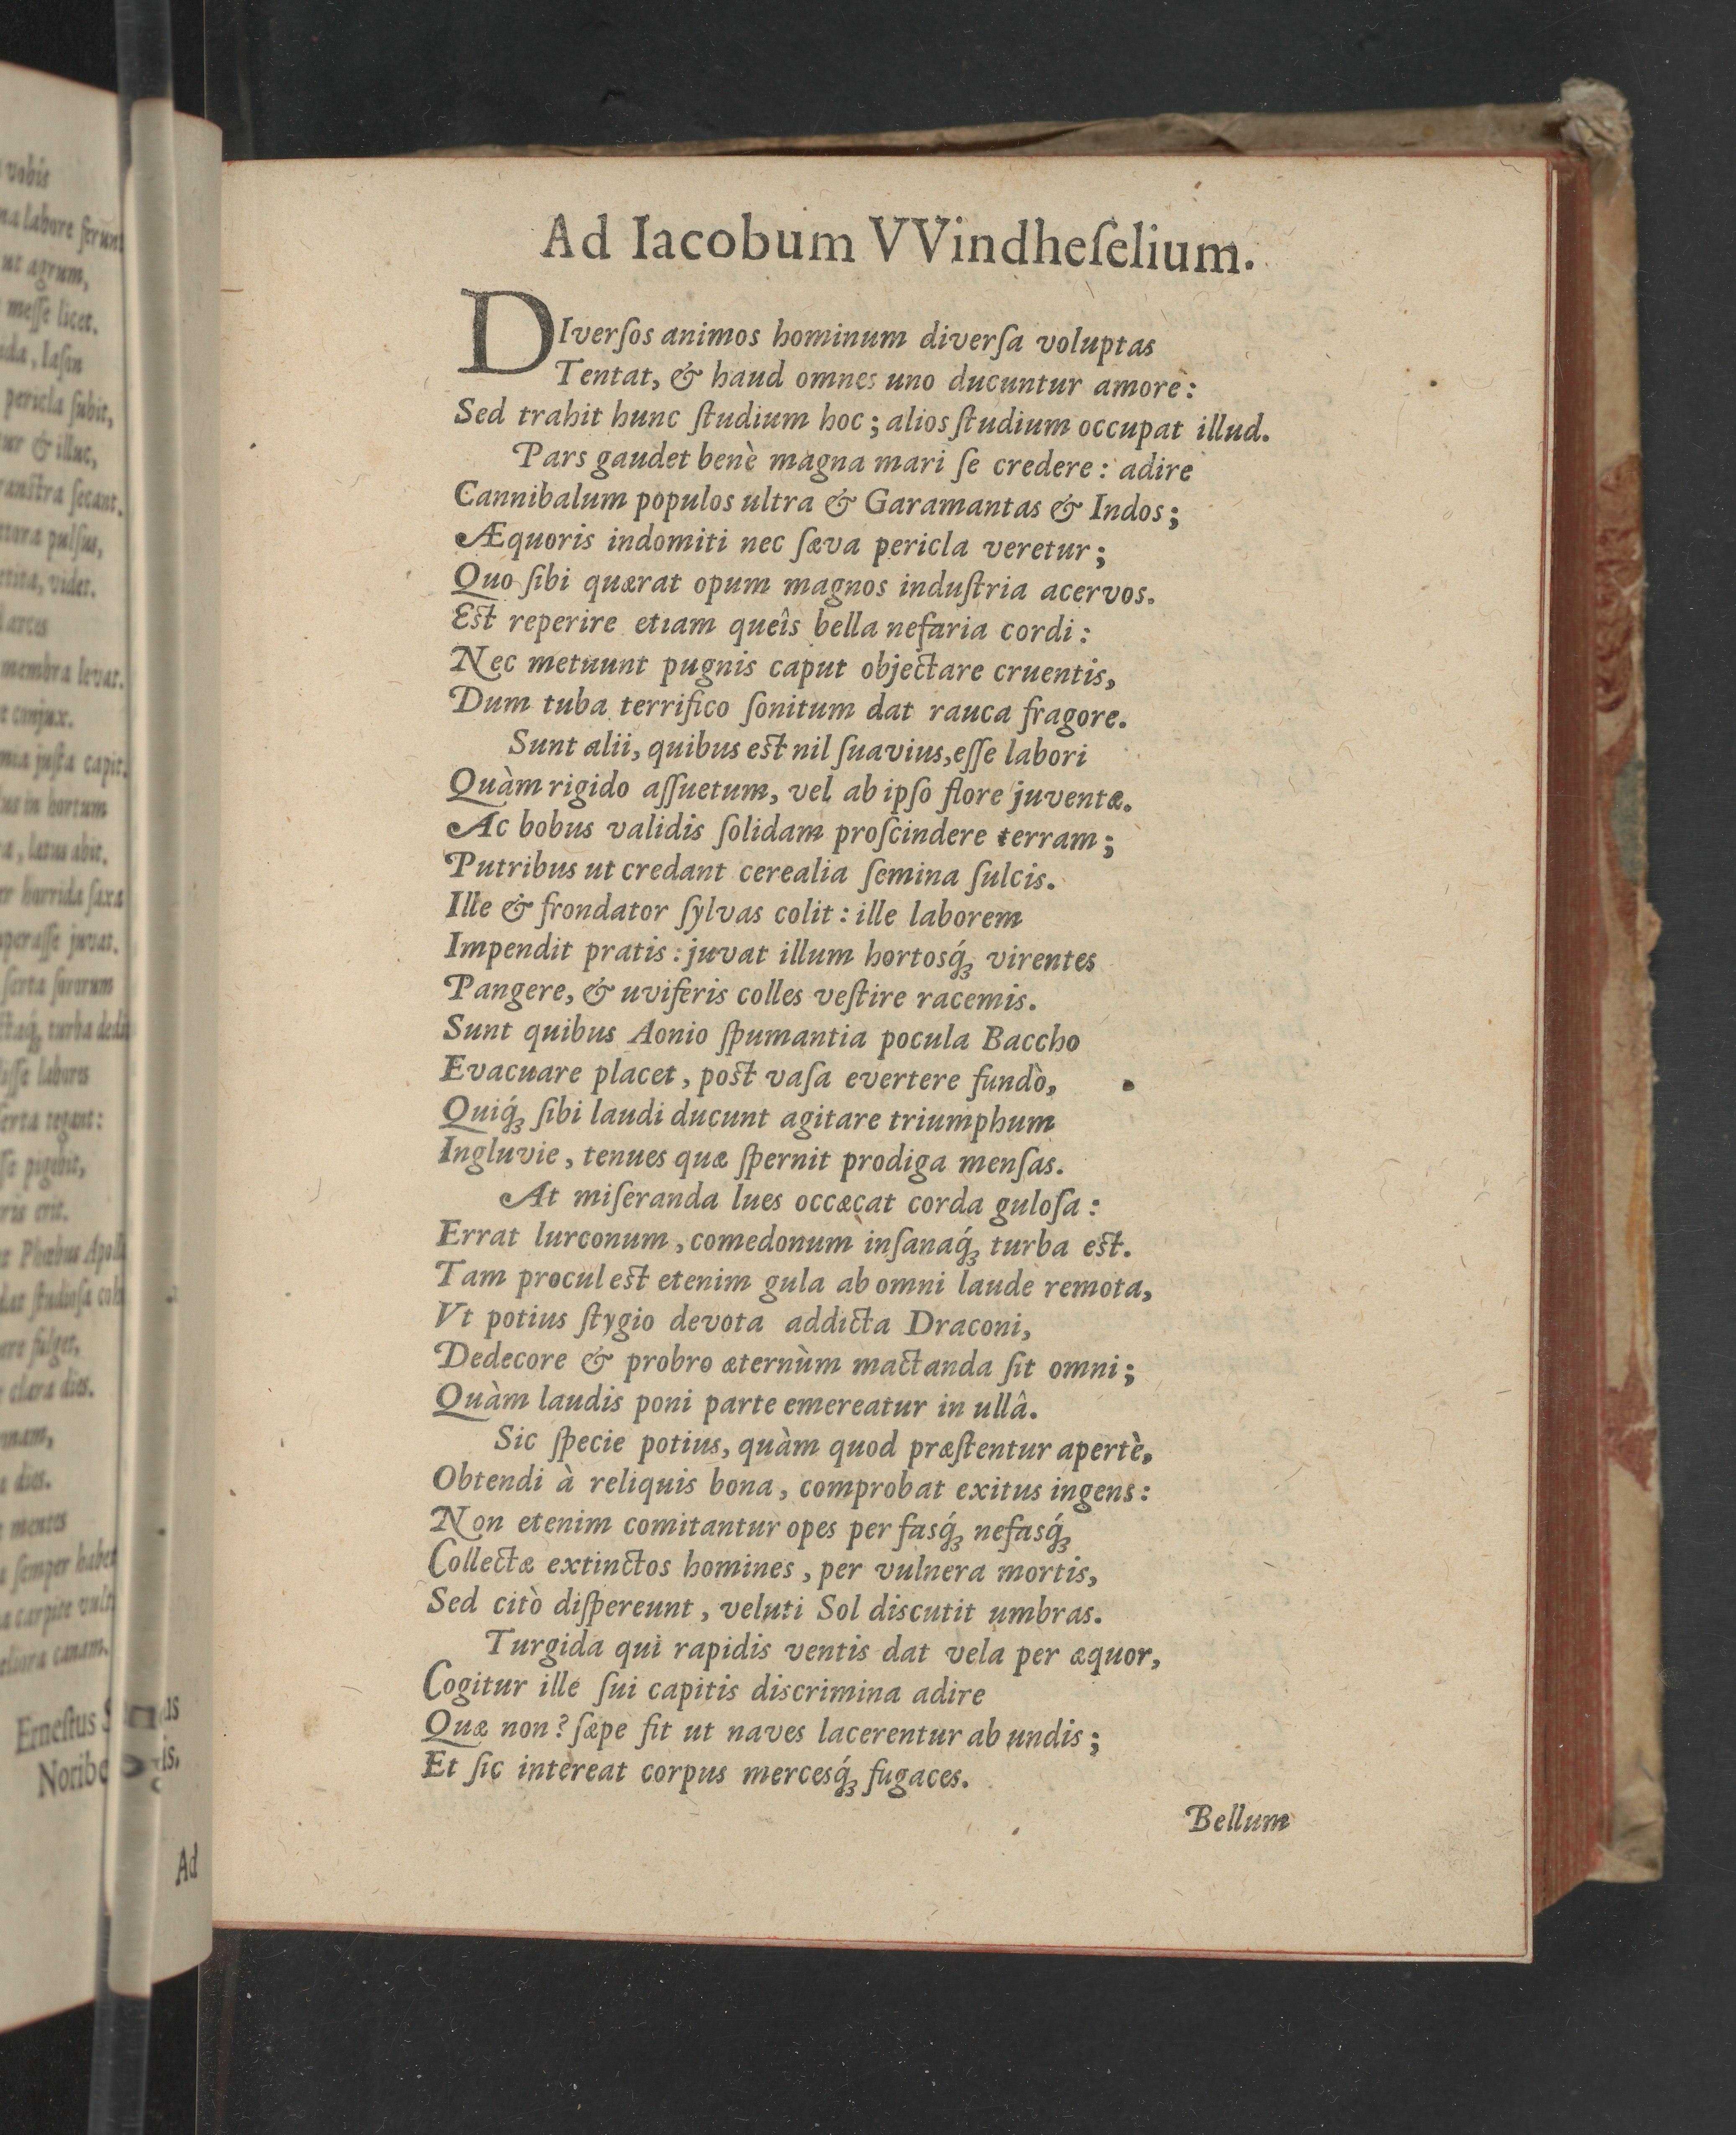 vobis
labore ferunt
ut agrum,
messe licet.
Iason
pericla subit,
& illuc,
secant.
pulsus,
videt.
artes
membra levat.
conjux.
justa capit.
in hortum
latus abit.
horrida saxa
juvat.
serta
turba
labores
tegent:
pigebit,
erit.
Phœbus
studiosa
fulget,
clara dies.
dies.
mentes
semper habet
carpite
canam.
Ernestus
Ad
Ad Iacobum VVindheſelium.
DIverſos animos hominum diverſa voluptas
Tentat, & haud omnes uno ducuntur amore:
Sed trahit hunc ſtudium hoc; alios ſtudium occupat illud.
Pars gaudet benè magna mari ſe credere: adire
Cannibalum populos ultra & Garamantas & Indos;
Æquoris indomiti nec ſæva pericla veretur;
Quo ſibi quærat opum magnos induſtria acervos.
Eſt reperire etiam queîs bella nefaria cordi:
Nec metuunt pugnis caput objectare cruentis,
Dum tuba terrifico ſonitum dat rauca fragore.
Sunt alii, quibus eſt nil ſuavius, eſſe labori
Quàm rigido aſſuetum, vel ab ipſo flore juventæ.
Ac bobus validis ſolidam proſcindere terram;
Putribus ut credant cerealia ſemina ſulcis.
Ille & frondator ſylvas colit: ille laborem
Impendit pratis: juvat illum hortosq́; virentes
Pangere, & uviferis colles veſtire racemis.
Sunt quibus Aonio ſpumantia pocula Baccho
Evacuare placet, poſt vaſa evertere fundò,
Quiq́; ſibi laudi ducunt agitare triumphum
Ingluvie, tenues quæ ſpernit prodiga menſas.
At miſeranda lues occæcat corda guloſa:
Errat lurconum, comedonum inſanaq́; turba eſt.
Tam procul eſt etenim gula ab omni laude remota,
Vt potius ſtygio devota addicta Draconi,
Dedecore & probro æternùm mactanda ſit omni;
Quàm laudis poni parte emereatur in ullâ.
Sic ſpecie potius, quàm quod præſtentur apertè,
Obtendi à reliquis bona, comprobat exitus ingens:
Non etenim comitantur opes per fasq́; nefasq́;
Collectæ extinctos homines, per vulnera mortis,
Sed citò diſpereunt, veluti Sol discutit umbras.
Turgida qui rapidis ventis dat vela per æquor,
Cogitur ille ſui capitis discrimina adire
Quæ non? ſæpe fit ut naves lacerentur ab undis;
Et ſic intereat corpus mercesq́; fugaces.
Bellum